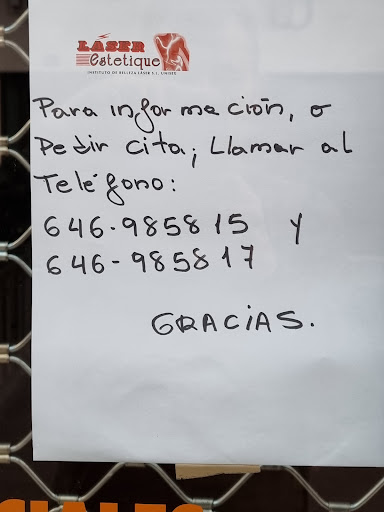 LÁSER
estetique
INSTITUTO DE BELLEZA LÁSER S.L. UNISEX
Para información, o
Pedir cita; Llamar al
Teléfono:
646.985815 y
646-985817
GRACIAS.
CIALES